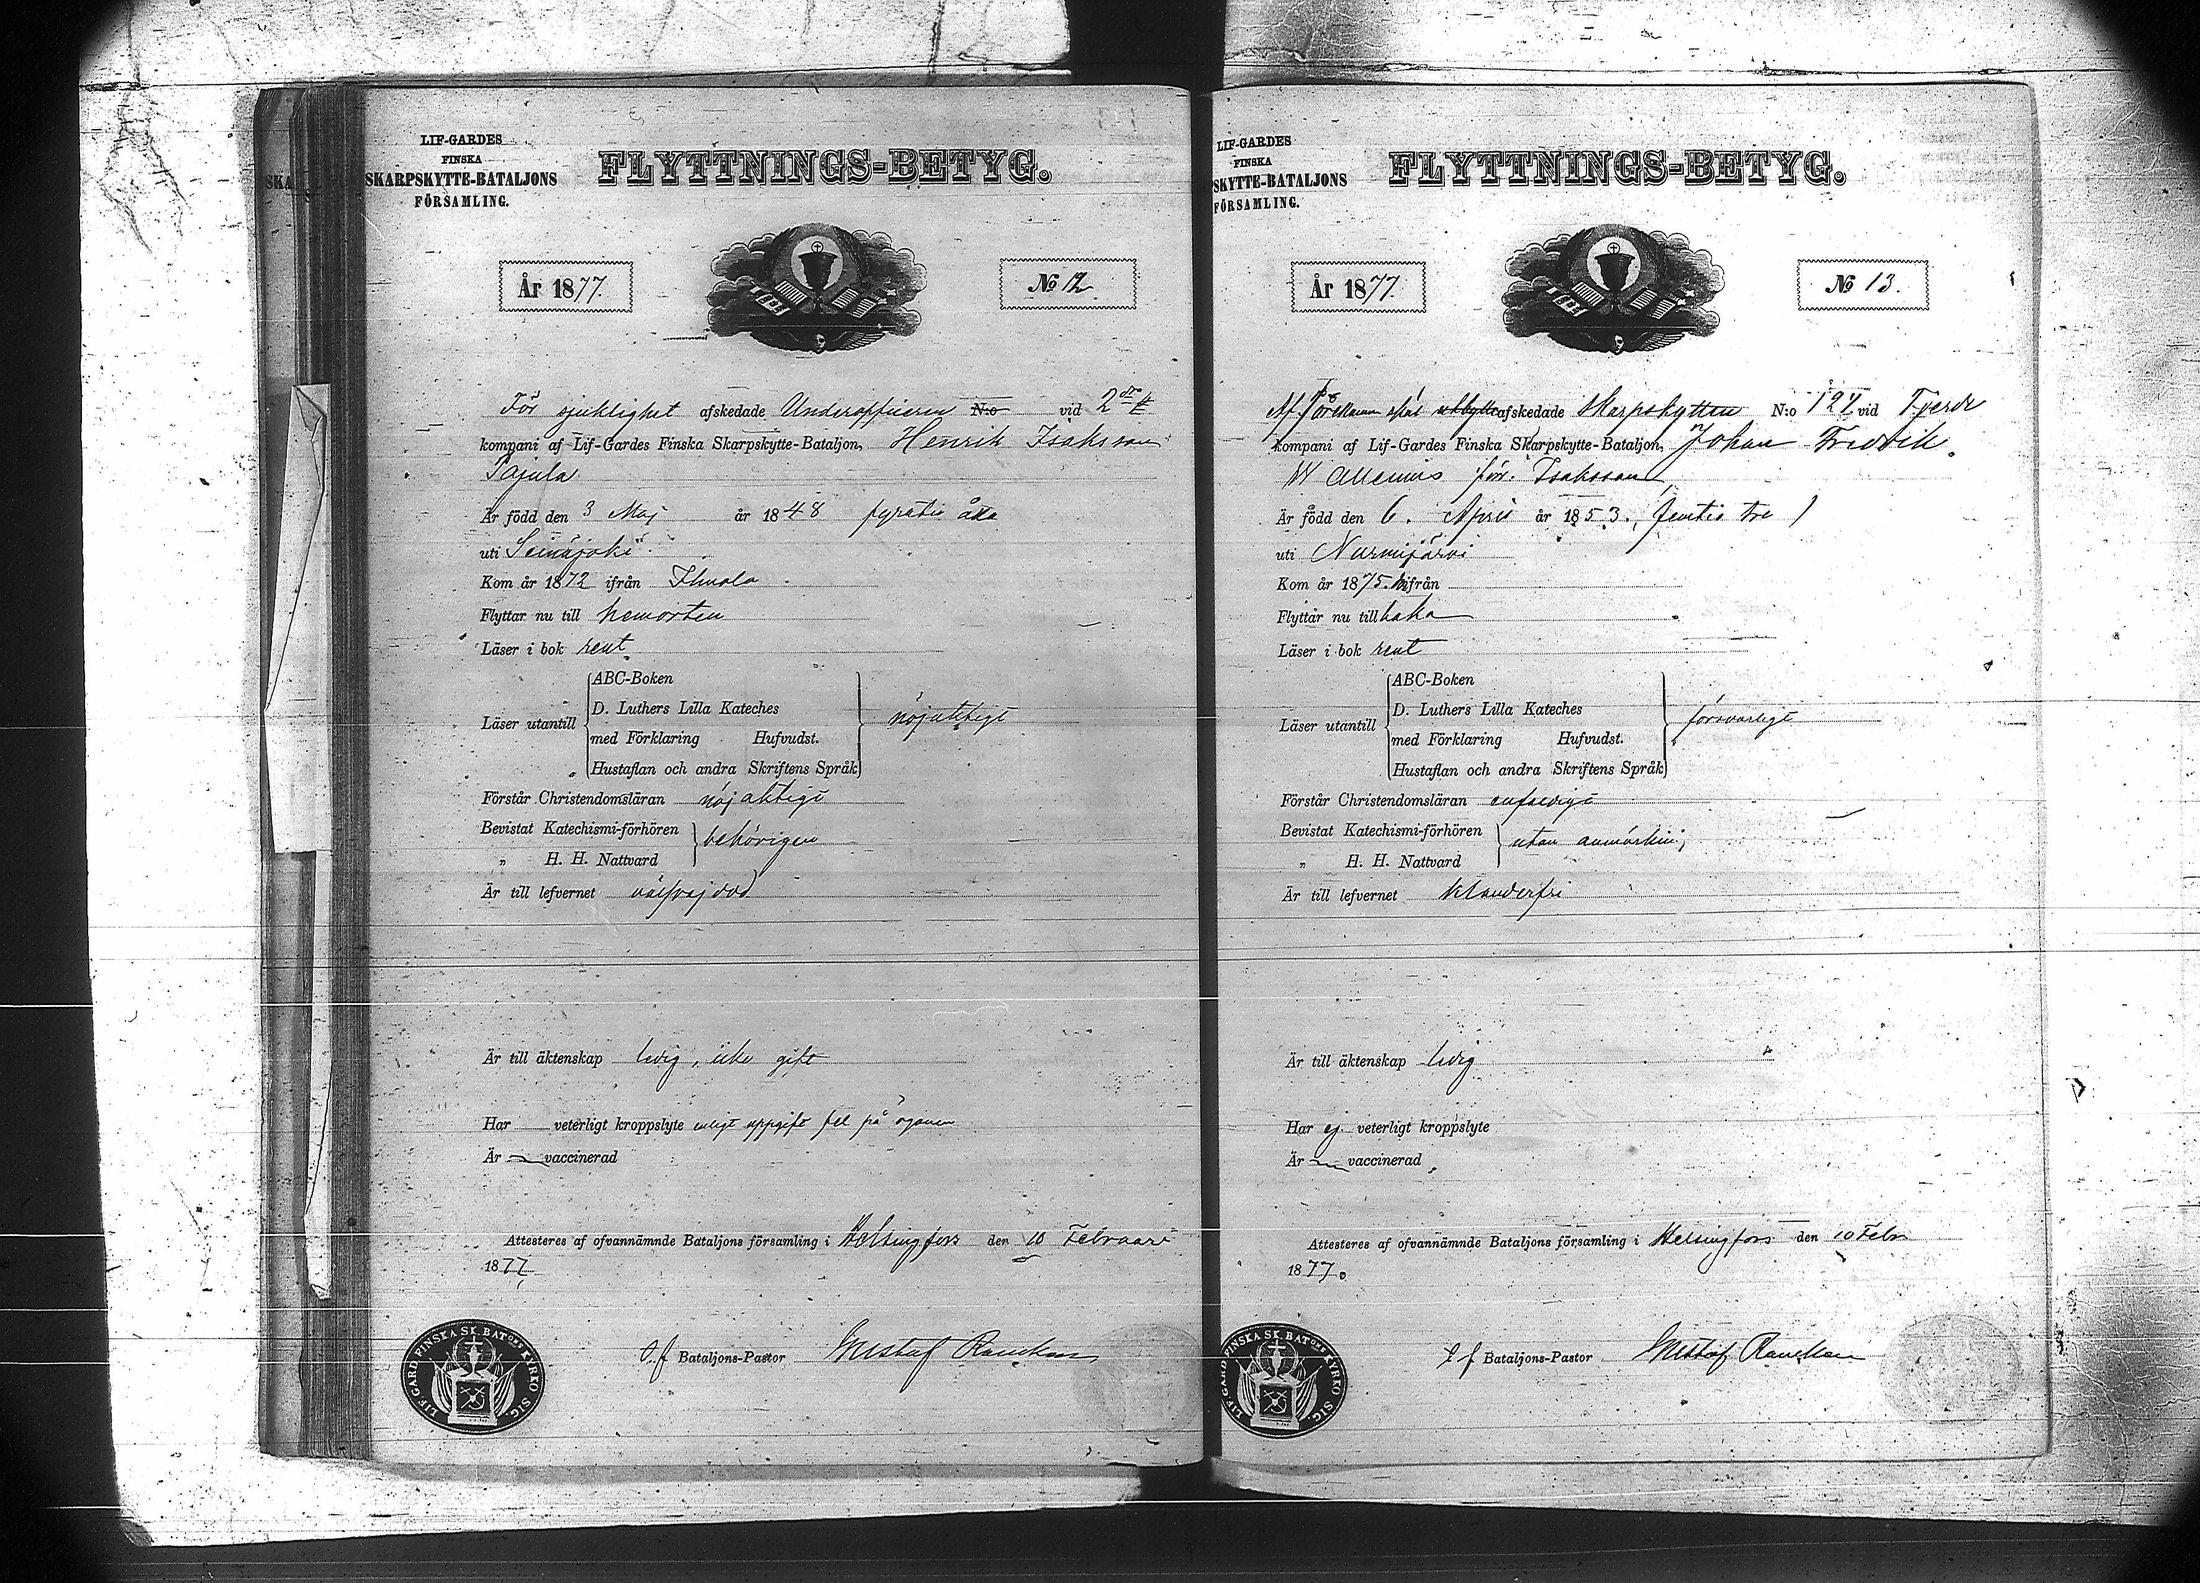 LIF-GARDES
FINSKA
SKARPSKYTTE-BATALJONS
FÖRSAMLING.
FLYTTNINGS-BETYG.
År 1877.
No 12
För sjuklighet afskedade Underofficeren N:o vid 2dra
kompani af Lif-Gardes Finska Skarpskytte-Bataljon, Henrik Isaksson
Pajula
Är född den 3 Maj år 1848 fyratio åtta
uti Seinäjoki
Kom år 1872 ifrån Ilmola
Flyttar nu till hemorten
Läser i bok rent
Läser utantill
ABC-Boken
D. Luthers Lilla Kateches
med Förklaring Hufvudst.
Hustaflan och andra Skriftens Språk
nöjaktigt
Förstår Christendomsläran nöjaktigt
Bevistat Katechismi-förhören
„ H. H. Nattvard
behörigen
Är till lefvernet välfrejdad
Är till äktenskap ledig, icke gift
Har veterligt kroppslyte enligt uppgift fel på ögonen
Är vaccinerad
Attesteres af ofvannämnde Bataljons församling i Helsingfors den 10 Februari
1877
LIF. GARD. FINSKA SK. BATons KYRKO SIG.
Bataljons-Pastor Gustaf Rancken
LIF-GARDES
FINSKA
SKYTTE-BATALJONS
FÖRSAMLING.
FLYTTNINGS-BETYG.
År 1877.
No 13.
afskedade Skarpskytten N:o 127 vid Fjerde
kompani af Lif-Gardes Finska Skarpskytte-Bataljon, Johan Fredrik
Wallenius för. Isaksson
Är född den 6. April år 1853. femtio tre
uti Nurmijärvi
Kom år 1875. ifrån
Flyttar nu till baka
Läser i bok rent
Läser utantill
ABC-Boken
D. Luthers Lilla Kateches
med Förklaring Hufvudst.
Hustaflan och andra Skriftens Språk
försvarligt
Förstår Christendomsläran enfaldigt
Bevistat Katechismi-förhören
„ H. H. Nattvard
utan anmärkning
Är till lefvernet klanderfri
Är till äktenskap ledig
Har ej veterligt kroppslyte
Är vaccinerad
Attesteres af ofvannämnde Bataljons församling i Helsingfors den 10 Febr
1877.
LIF. GARD. FINSKA SK. BATons KYRKO SIG.
Bataljons-Pastor Gustaf Rancken